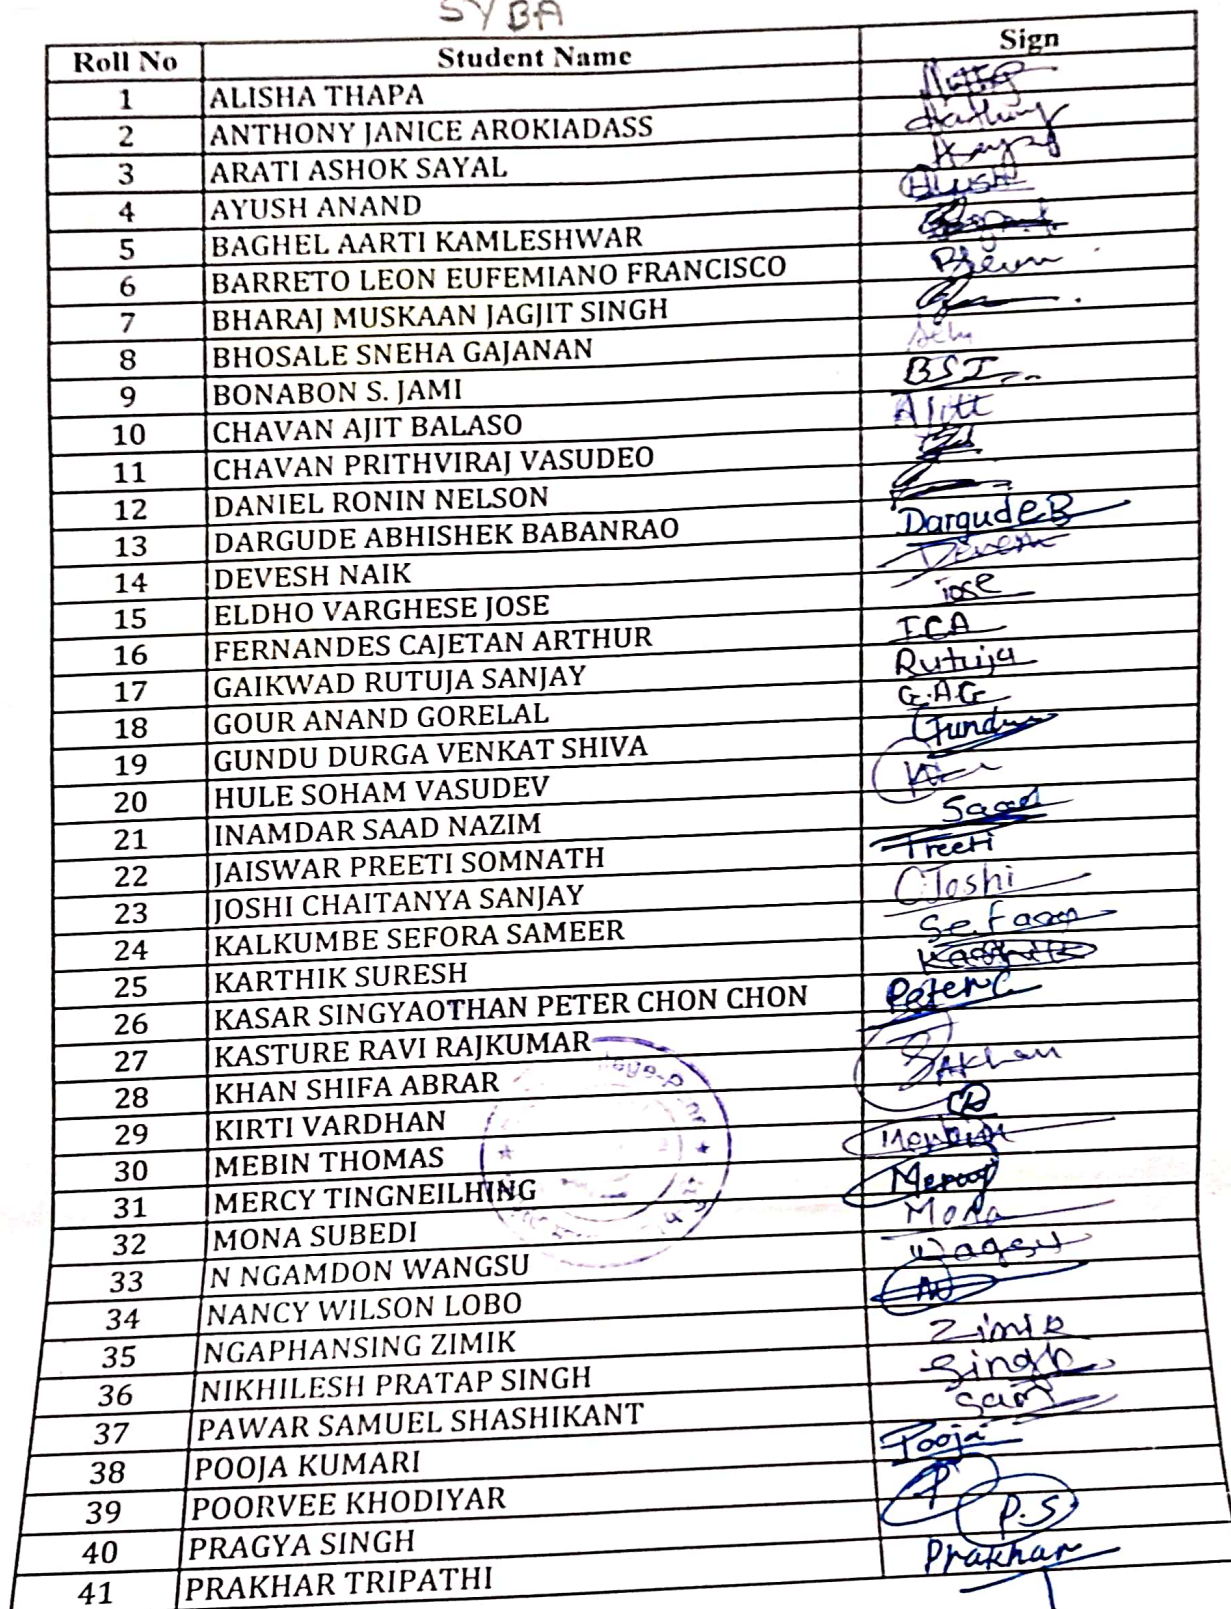 SYBA
Roll No Student Name Sign
1 ALISHA THAPA
2 ANTHONY JANICE AROKIADASS Anthony
3 ARATI ASHOK SAYAL
4 AYUSH ANAND Ayush
5 BAGHEL AARTI KAMLESHWAR
6 BARRETO LEON EUFEMIANO FRANCISCO
7 BHARAJ MUSKAAN JAGJIT SINGH
8 BHOSALE SNEHA GAJANAN
9 BONABON S. JAMI BSJ
10 CHAVAN AJIT BALASO
11 CHAVAN PRITHVIRAJ VASUDEO
12 DANIEL RONIN NELSON
13 DARGUDE ABHISHEK BABANRAO DargudeB
14 DEVESH NAIK Devesh
15 ELDHO VARGHESE JOSE jose
16 FERNANDES CAJETAN ARTHUR FCA
17 GAIKWAD RUTUJA SANJAY Rutuja
18 GOUR ANAND GORELAL G.A.G
19 GUNDU DURGA VENKAT SHIVA Gundu
20 HULE SOHAM VASUDEV
21 INAMDAR SAAD NAZIM Saad
22 JAISWAR PREETI SOMNATH Preeti
23 JOSHI CHAITANYA SANJAY CJoshi
24 KALKUMBE SEFORA SAMEER
25 KARTHIK SURESH Karthik
26 KASAR SINGYAOTHAN PETER CHON CHON PeterC
27 KASTURE RAVI RAJKUMAR
28 KHAN SHIFA ABRAR SAKhan
29 KIRTI VARDHAN
30 MEBIN THOMAS
31 MERCY TINGNEILHING
32 MONA SUBEDI Mona
33 N NGAMDON WANGSU Wagsu
34 NANCY WILSON LOBO
35 NGAPHANSING ZIMIK Zimik
36 NIKHILESH PRATAP SINGH Singh
37 PAWAR SAMUEL SHASHIKANT Sam
38 POOJA KUMARI Pooja
39 POORVEE KHODIYAR P
40 PRAGYA SINGH P.S
41 PRAKHAR TRIPATHI Prakhar